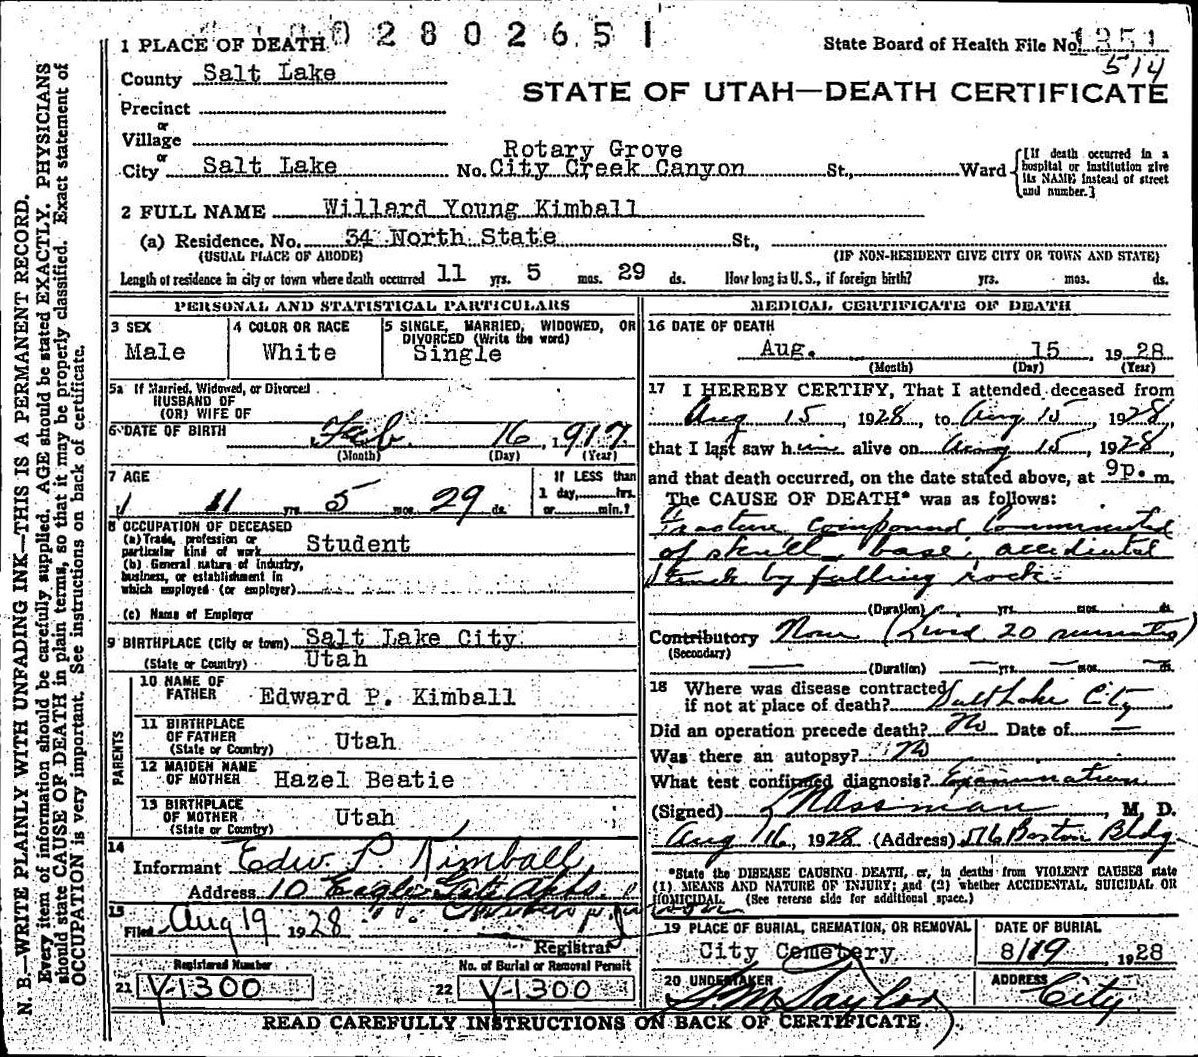 0 2 8 0 2 6 5 1
1 PLACE OF DEATH
State Board of Health File No. 1351
514
County Salt Lake
STATE OF UTAH—DEATH CERTIFICATE
Precinct
or
Village
or
City Salt Lake No. Rotary Grove City Creek Canyon St., Ward
[If death occurred in a hospital or institution give its NAME instead of street and number.]
2 FULL NAME Willard Young Kimball
(a) Residence. No. 34 North State St.,
(USUAL PLACE OF ABODE) (IF NON-RESIDENT GIVE CITY OR TOWN AND STATE)
Length of residence in city or town where death occurred 11 yrs. 5 mos. 29 ds. How long in U. S., if foreign birth? yrs. mos. ds.
PERSONAL AND STATISTICAL PARTICULARS
3 SEX
Male
4 COLOR OR RACE
White
5 SINGLE, MARRIED, WIDOWED, OR
DIVORCED (Write the word)
Single
5a If Married, Widowed, or Divorced
HUSBAND OF
(OR) WIFE OF
6 DATE OF BIRTH Feb. 16, 1917
(Month) (Day) (Year)
7 AGE
11 yrs. 5 mos. 29 ds.
If LESS than
1 day, hrs.
or min.?
8 OCCUPATION OF DECEASED
(a) Trade, profession or
particular kind of work Student
(b) General nature of industry,
business, or establishment in
which employed (or employer)
(c) Name of Employer
9 BIRTHPLACE (City or town) Salt Lake City
(State or Country) Utah
PARENTS
10 NAME OF
FATHER Edward P. Kimball
11 BIRTHPLACE
OF FATHER
(State or Country) Utah
12 MAIDEN NAME
OF MOTHER Hazel Beatie
13 BIRTHPLACE
OF MOTHER
(State or Country) Utah
14
Informant Edw P. Kimball
Address 10 Eagle Gate Apts.
15
Filed Aug 19 1928
Registrar
Registered Number
21 Y-1300
No. of Burial or Removal Permit
22 Y-1300
MEDICAL CERTIFICATE OF DEATH
16 DATE OF DEATH
Aug. 15, 1928
(Month) (Day) (Year)
17 I HEREBY CERTIFY, That I attended deceased from
Aug 15, 1928, to Aug 15, 1928,
that I last saw him alive on Aug 15, 1928,
and that death occurred, on the date stated above, at 9p. m.
The CAUSE OF DEATH* was as follows:
Fracture compound comminuted
of skull, base, accidental
struck by falling rock.
(Duration) yrs. mos. ds.
Contributory None (Lived 20 minutes)
(Secondary)
(Duration) yrs. mos. ds.
18 Where was disease contracted
if not at place of death? Salt Lake City
Did an operation precede death? No Date of —
Was there an autopsy? No
What test confirmed diagnosis? Examination
(Signed) Nassman, M. D.
Aug 16, 1928 (Address) 516 Boston Bldg
*State the DISEASE CAUSING DEATH, or, in deaths from VIOLENT CAUSES state
(1) MEANS AND NATURE OF INJURY; and (2) whether ACCIDENTAL, SUICIDAL OR
HOMICIDAL. (See reverse side for additional space.)
19 PLACE OF BURIAL, CREMATION, OR REMOVAL
City Cemetery
DATE OF BURIAL
8/19 1928
20 UNDERTAKER
S. M. Taylor
ADDRESS
City
READ CAREFULLY INSTRUCTIONS ON BACK OF CERTIFICATE
N. B.—WRITE PLAINLY WITH UNFADING INK—THIS IS A PERMANENT RECORD.
Every item of information should be carefully supplied. AGE should be stated EXACTLY. PHYSICIANS
should state CAUSE OF DEATH in plain terms, so that it may be properly classified. Exact statement of
OCCUPATION is very important. See instructions on back of certificate.